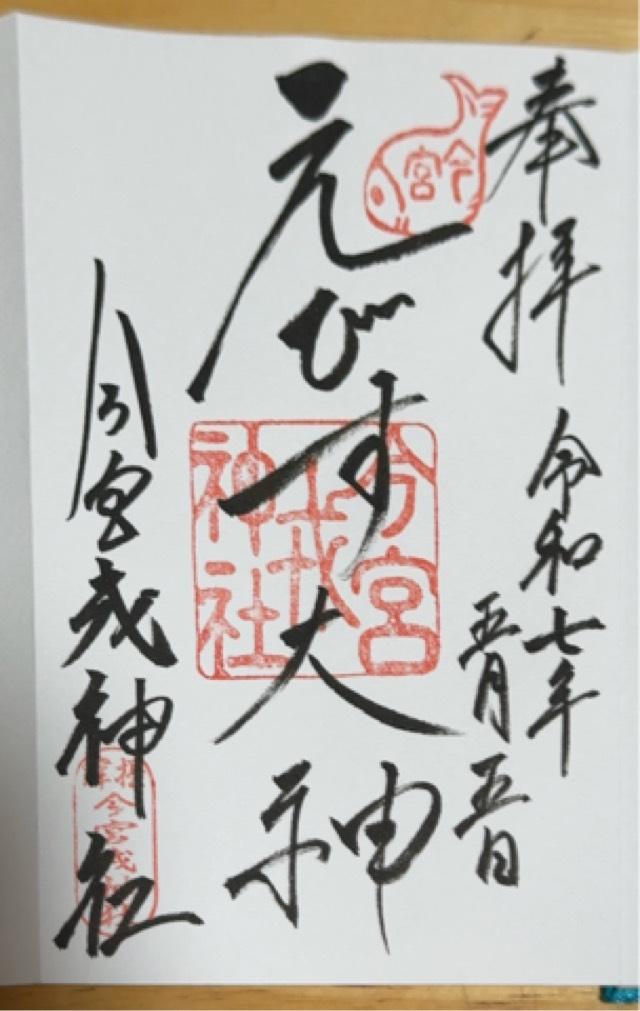 奉拝
令和七年
五月五日
今宮
えびす大神
今宮戎神社
今宮戎神社
今宮戎神社